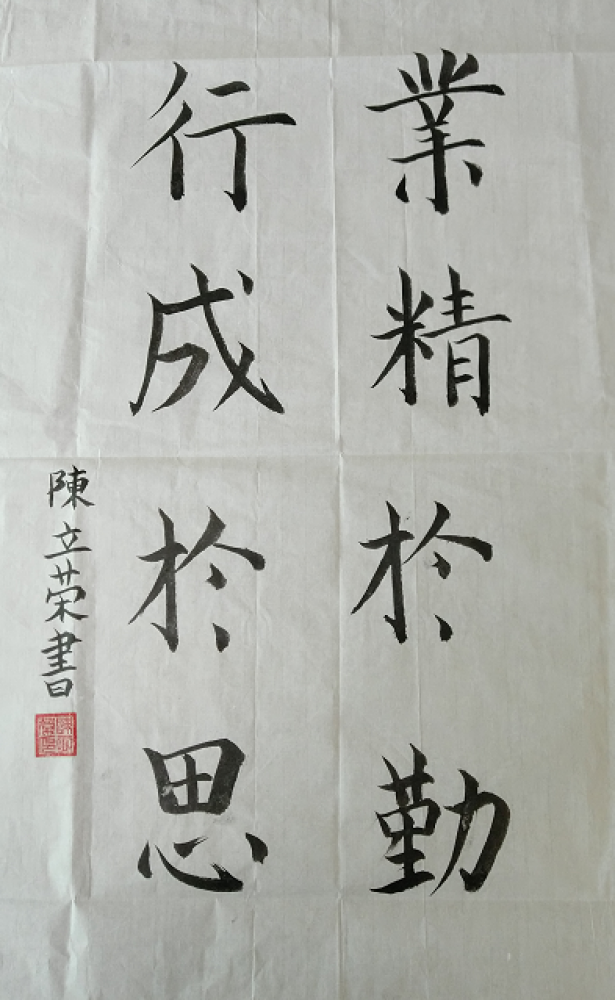 業精於勤
行成於思
陳立荣書